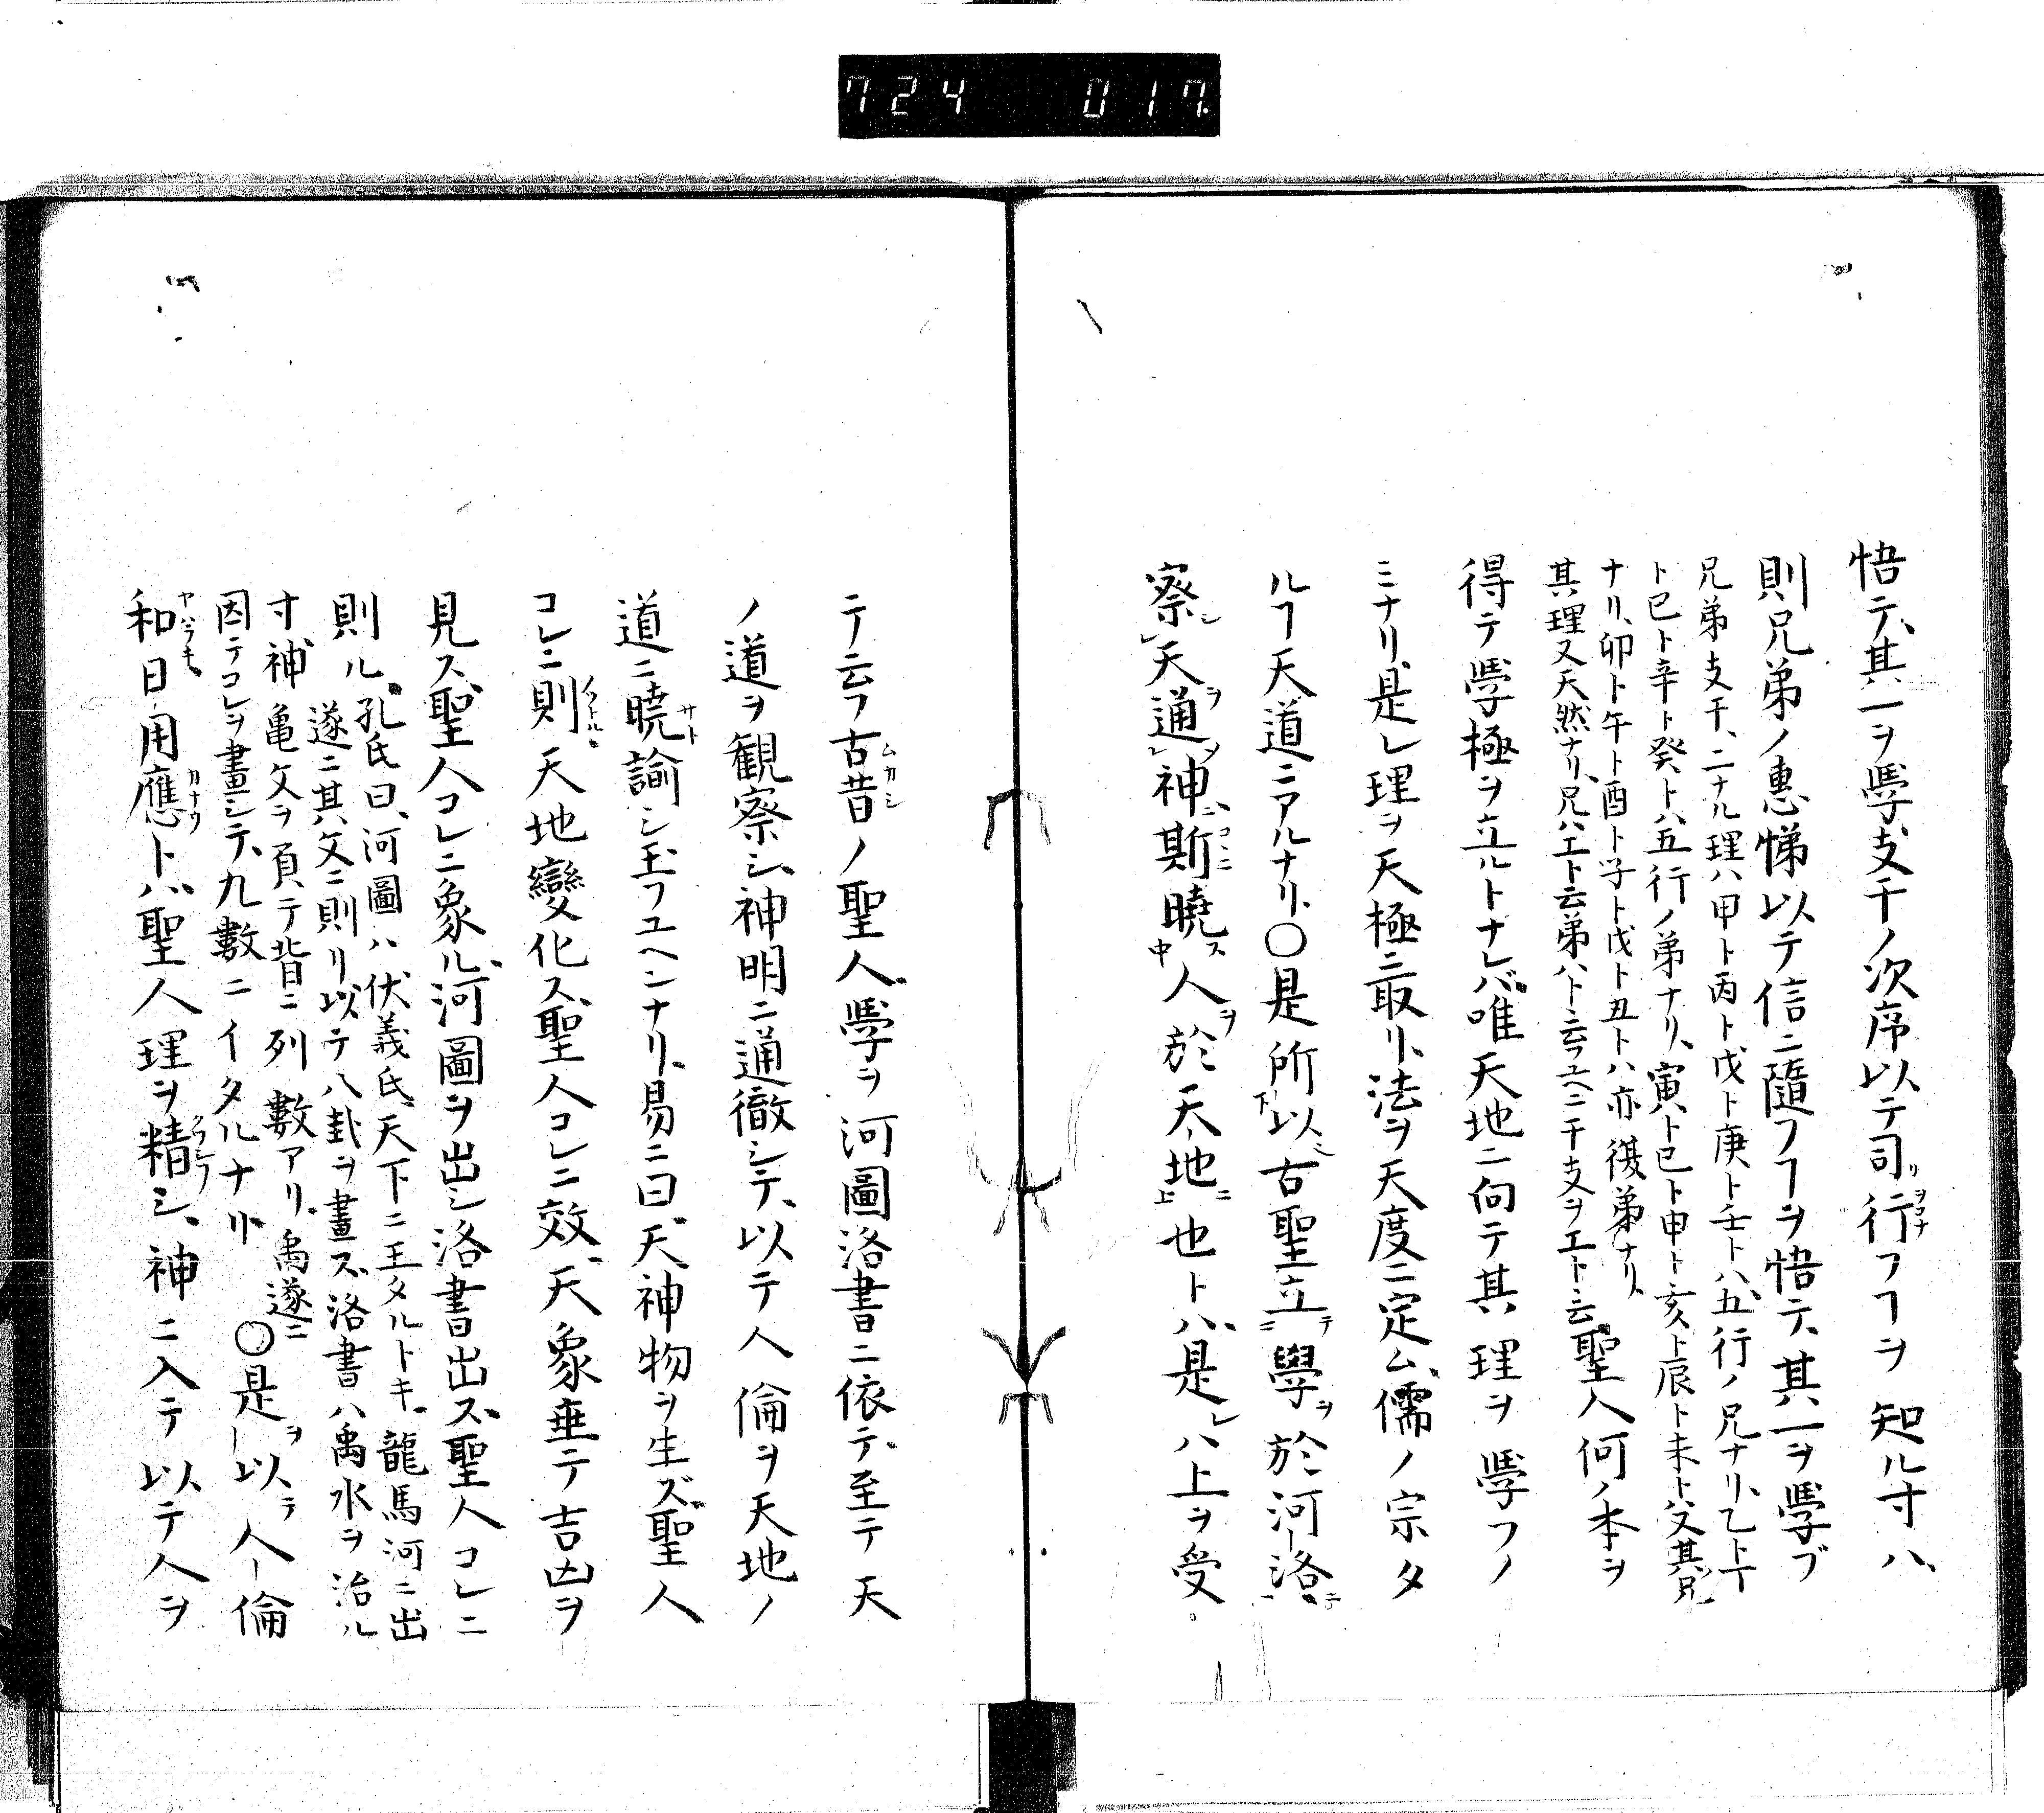 724 017
悟テ、其一ヲ學支干ノ次序以テ司行フヿヲ知ル寸ハ、
則兄弟ノ惠悌以テ信ニ隨フヿヲ悟テ、其一ヲ學ブ
兄弟支干、二ナル理ハ甲ト丙ト戊ト庚ト壬トハ、五行ノ兄ナリ、乙ト丁
ト巳ト辛ト癸トハ五行ノ弟ナリ、寅ト巳ト申ト亥ト辰ト未トハ又其兄
ナリ、卯ト午ト酉ト子ト戌ト丑トハ亦復弟ナリ、
其理又天然ナリ、兄ハエト云弟ハトト云フユヘニ干支ヲエトト云、聖人何ノ本ヲ
得テ學極ヲ立ルトナレバ唯天地ニ向テ其理ヲ學フノ
ミナリ、是レ理ヲ天極ニ取リ、法ヲ天度ニ定ム、儒ノ宗タ
ルヿ天道ニアルナリ、〇是所以古聖立テ學ヲ於河洛ニ
察シ天ヲ通メ神ニ斯ニ曉ス人ヲ於天地ニ也トハ、是レハ上ヲ受
テ云フ古昔ノ聖人學ヲ河圖洛書ニ依テ、至テ天
ノ道ヲ観察シ、神明ニ通徹シテ、以テ人倫ヲ天地ノ
道ニ曉諭シ玉フユヘンナリ、易ニ曰、天神物ヲ生ズ、聖人
コレニ則、天地變化ス、聖人コレニ效、天象垂テ吉凶ヲ
見ス、聖人コレニ象ル、河圖ヲ出シ洛書出ス、聖人コレニ
則ル、孔氏曰、河圖ハ伏義氏、天下ニ王タルトキ、龍馬河ニ出
遂ニ其文ニ則リ以テ八卦ヲ畫ス、洛書ハ禹水ヲ治ル
寸神亀文ヲ負テ背ニ列數アリ、禹遂ニ
因テコレヲ畫シテ、九數ニイタルナリ 〇是ヲ以テ人倫
和日用應トハ、聖人理ヲ精シ、神ニ入テ以テ人ヲ